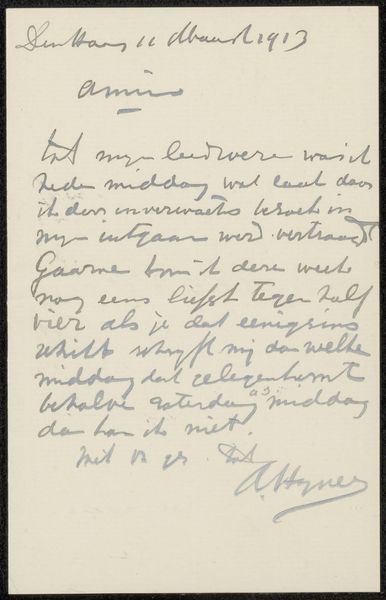 Den Haag 11 Maart 1913
Amice
tot mijn leedwezen was ik
heden middag wat laat daar
ik door onverwachts bezoek in
mijn uitgaan werd vertraagd
Gaarne kom ik deze week
nog eens liefst tegen half
vier als je dat eenigsins
schikt schryft mij dan welke
middag dat gelegen komt
behalve zaterdag as middag
dan kan ik niet.
Met vr gr tat